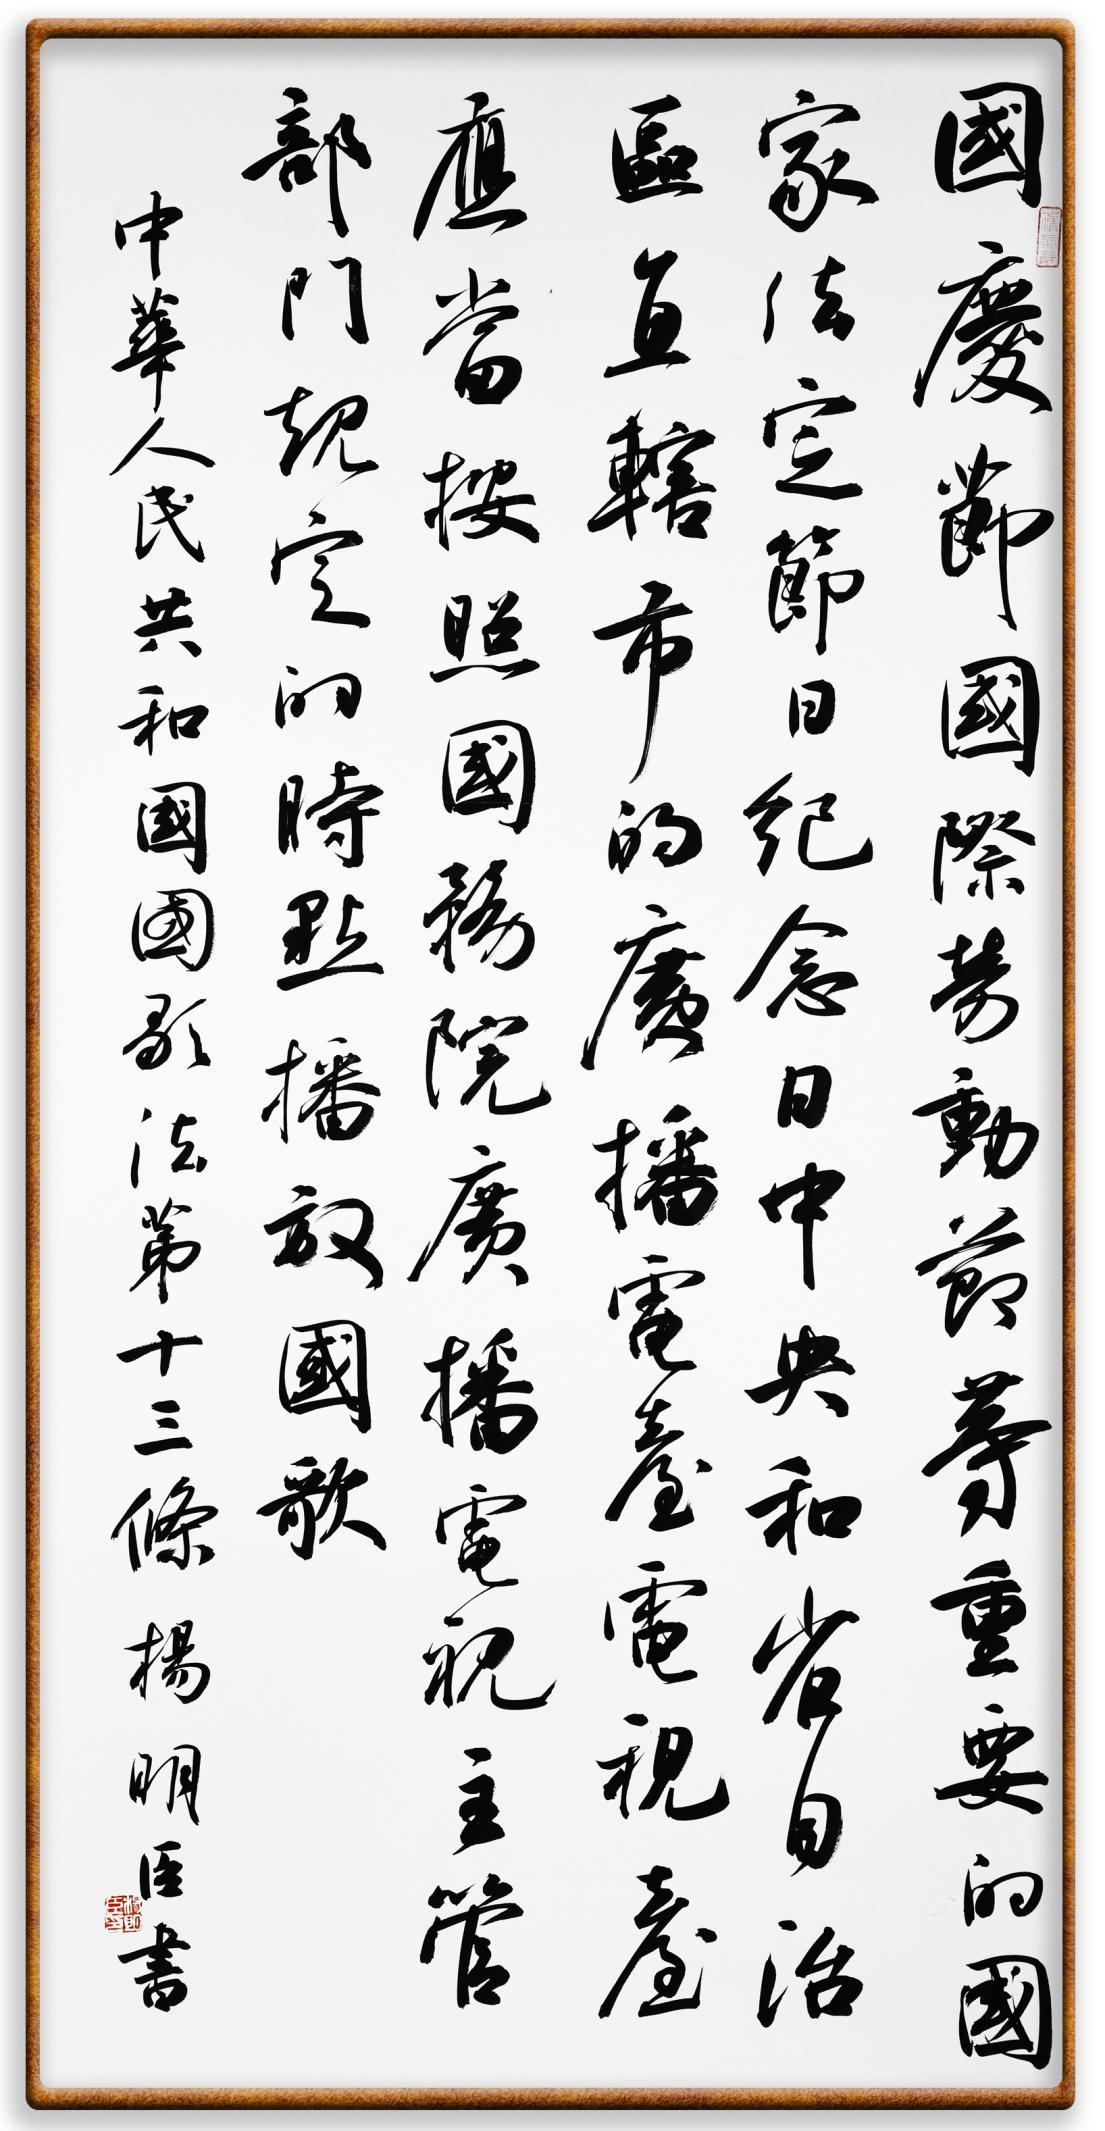 國慶節國際勞動節等重要的國
家法定節日紀念日中央和省自治
區直轄市的廣播電臺電視臺
應當按照國務院廣播電視主管
部門規定的時點播放國歌
中華人民共和國國歌法第十三條 楊明臣書